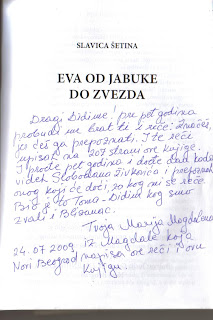 SLAVICA ŠETINA
EVA OD JABUKE
DO ZVEZDA
Dragi Didime! pre pet godina
probudi me brat ti i reče: Značeš,
ja ćeš ga prepoznati. I te reči
upisah na 207 strani ove knjige.
I prođe pet godina i dođe dan kada
videh Slobodana Živkovića i prepoznah
onog koji će doći, za kog mi se reče
Bio je to Toma-Didim kog smo
zvali i Blizanac.
Tvoja Marija Magdalena
24.07.2009 iz Magdale koja
Novi Beograd napisa ove reči i ovu
Knjigu